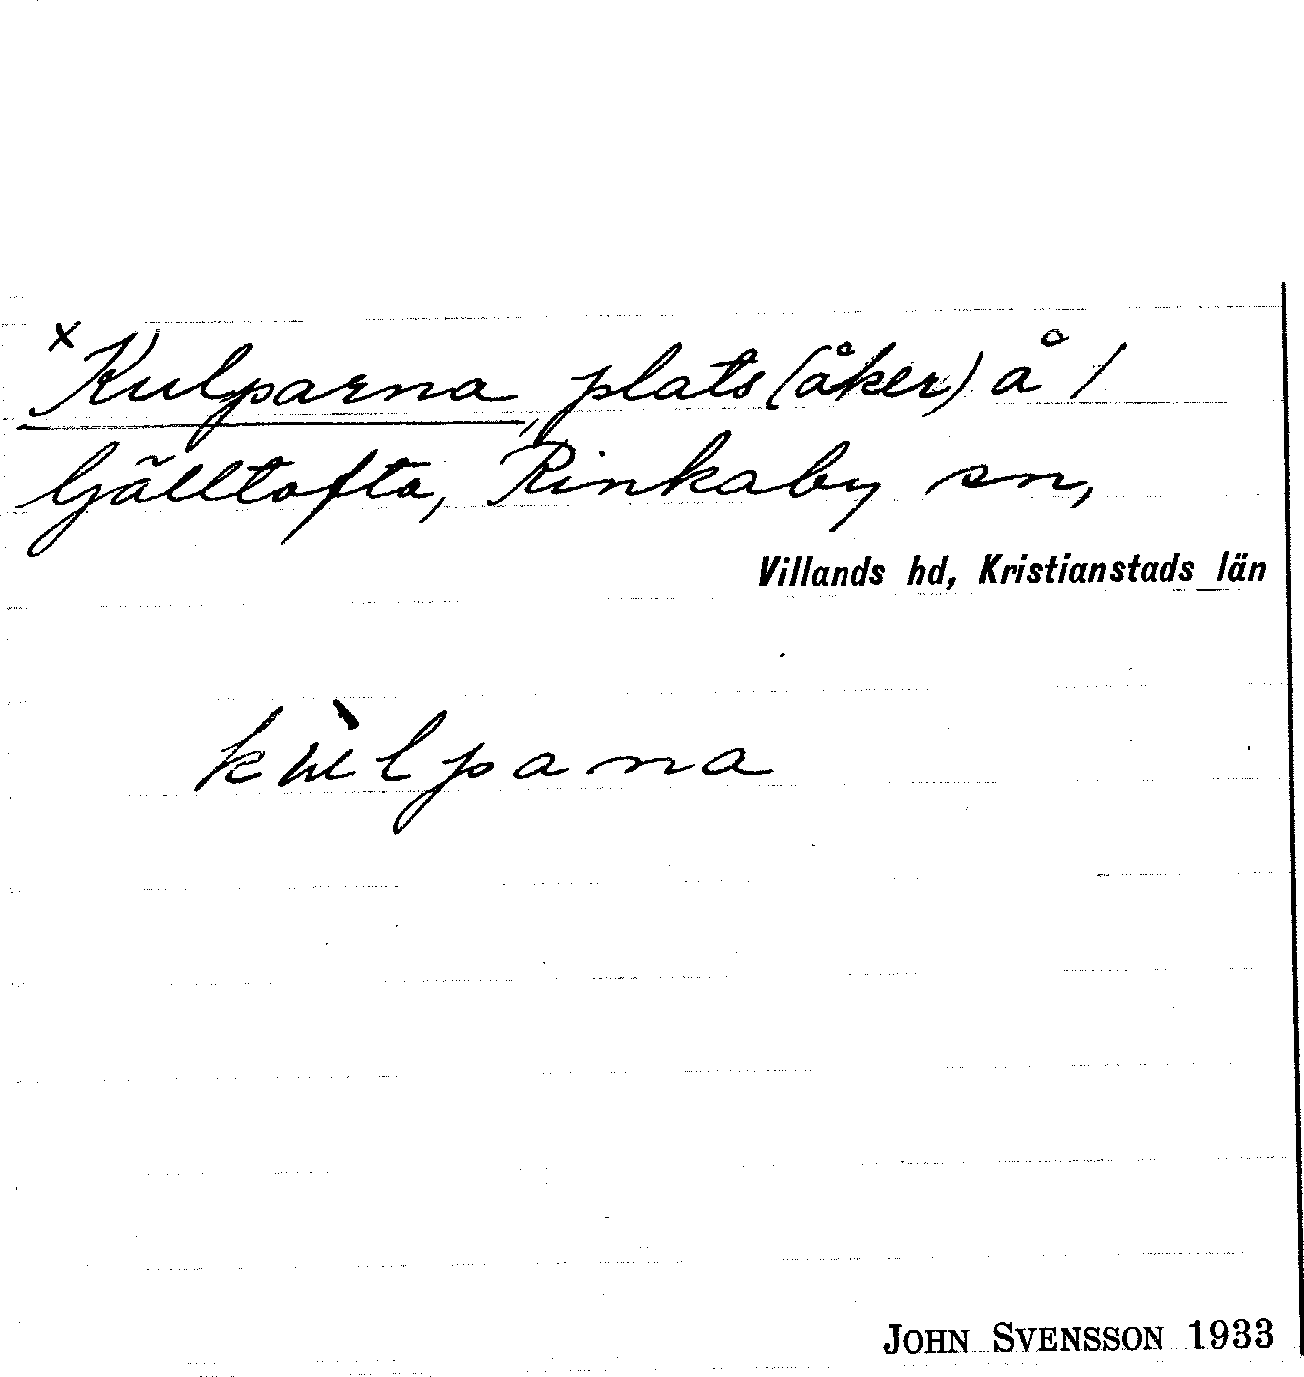 × Kulparna, plats (åker) å 1
Gälltofta, Rinkaby sn,
Villands hd, Kristianstads län
kùlpana
JOHN SVENSSON 1933